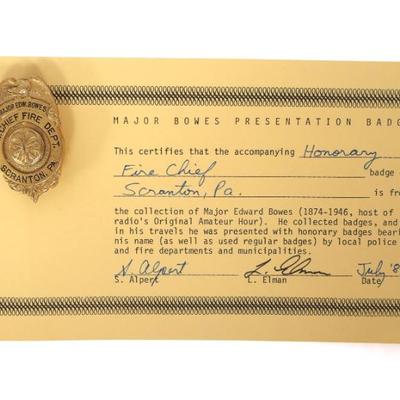 MAJOR EDW. BOWES
CHIEF FIRE DEPT.
SCRANTON, PA.
MAJOR BOWES PRESENTATION BADG
This certifies that the accompanying Honorary
Fire Chief badge
Scranton, Pa. is fr
the collection of Major Edward Bowes (1874-1946, host of
radio's Original Amateur Hour). He collected badges, and
in his travels he was presented with honorary badges bearin
his name (as well as used regular badges) by local police
and fire departments and municipalities.
S. Alpert L. Elman July '8
S. Alpert L. Elman Date